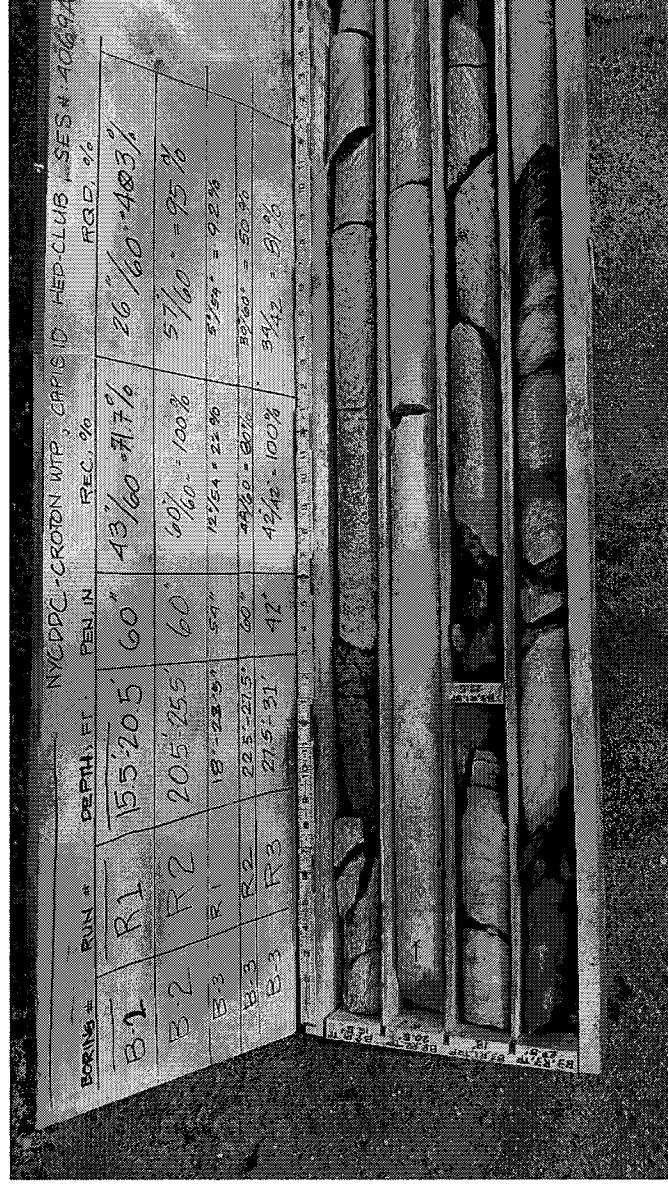 NYCDDC-CROTON WTP, CAPIS ID HED-CLUB, SES#: 4069A
BORING # RUN # DEPTH, FT. PEN, IN REC, % RQD, %
B-2 R1 15.5'-20.5' 60" 43"/60"=71.7% 26"/60"=43.3%
B-2 R2 20.5'-25.5' 60" 60"/60"=100% 57"/60"=95%
B-3 R1 18'- 54" 12"/54=22% 5"/54"=9.2%
B-3 R2 22.5'-27.5' 60" 48/60=80% 30/60"=50%
B-3 R3 27.5'-31' 42" 42"/42"=100% 34/42=81%